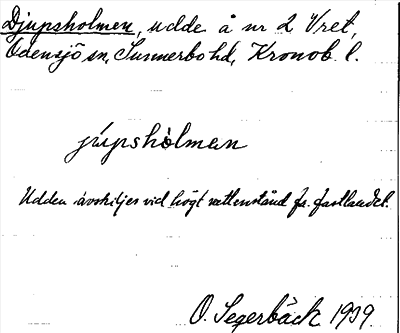 Djupsholmen, udde å nr 2 Vret,
Odensjö sn, Sunnerbo hd, Kronob. l.
júpshòlman
Udden avskiljes vid högt vattenstånd fr. fastlandet.
O. Segerbäck 1939.